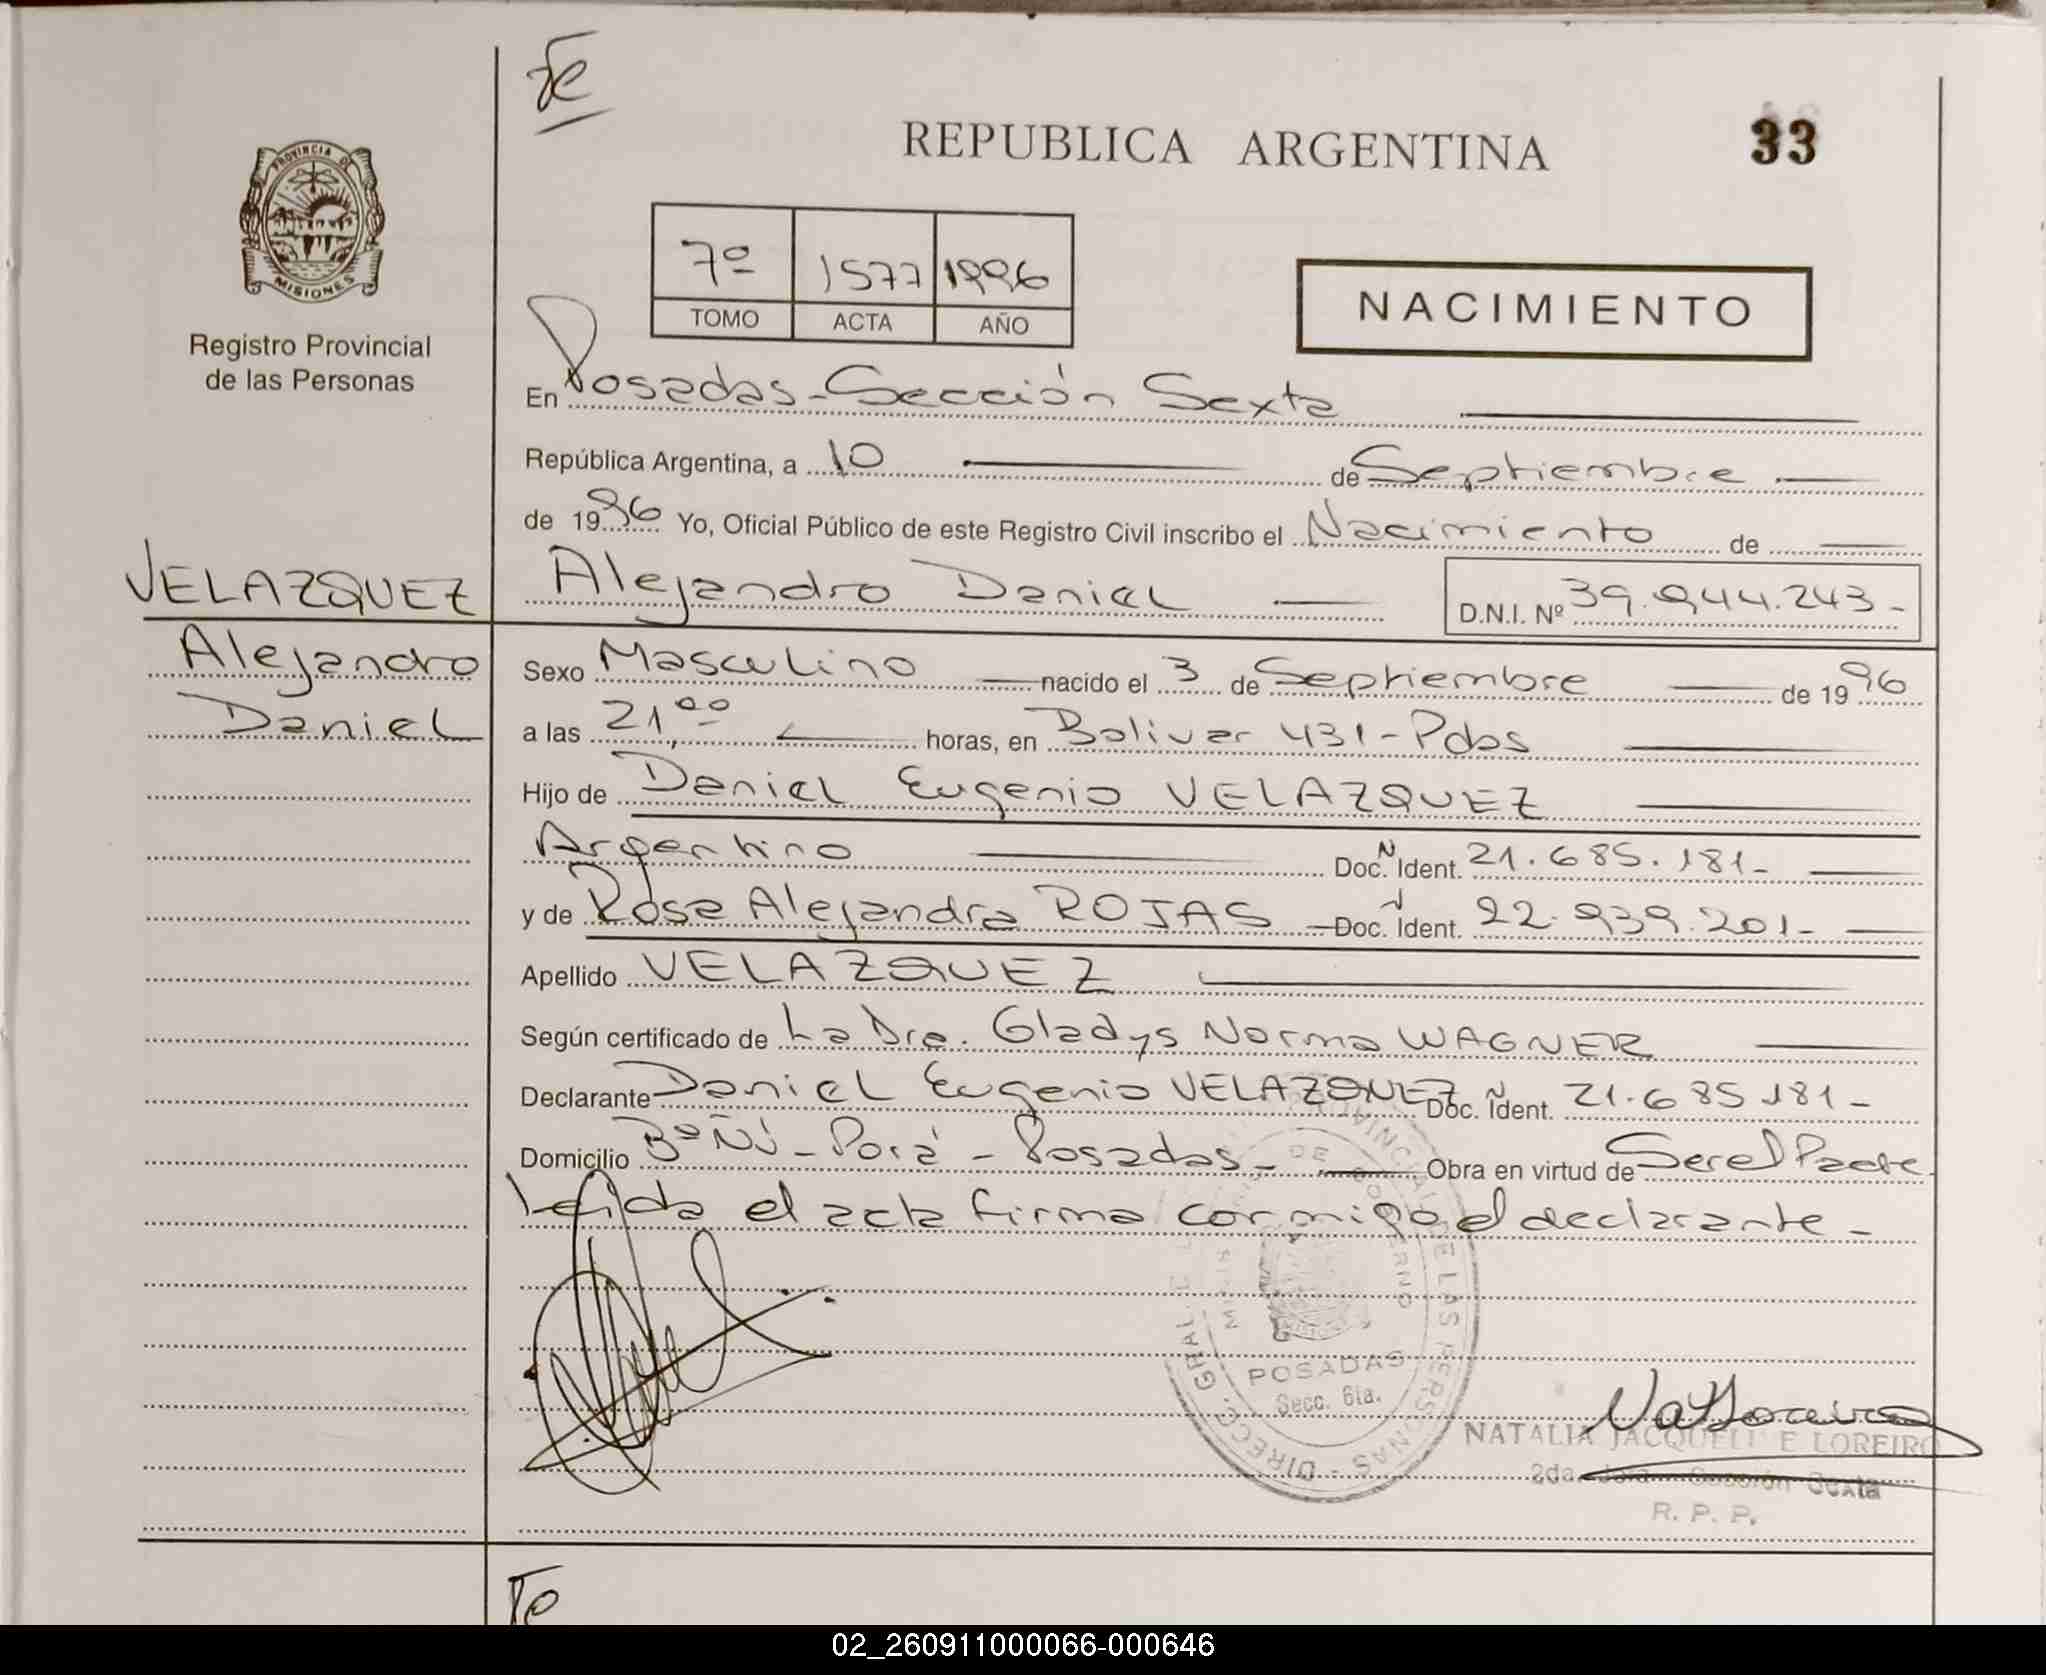 Te
REPUBLICA ARGENTINA
33
PROVINCIA DE
MISIONES
Registro Provincial
de las Personas
7º 1577 1996
TOMO ACTA AÑO
NACIMIENTO
En Posadas - Sección Sexta
República Argentina, a 10 de Septiembre
de 1996 Yo, Oficial Público de este Registro Civil inscribo el Nacimiento de
VELAZQUEZ
Alejandro Daniel D.N.I. Nº 39.944.243-
Alejandro
Daniel
Sexo Masculino nacido el 3 de Septiembre de 1996
a las 21,00 horas, en Bolivar 431 - Pdas
Hijo de Daniel Eugenio VELAZQUEZ
Argentino Doc. N Ident. 21.685.181-
y de Rosa Alejandra ROJAS Doc. N Ident. 22.939.201-
Apellido VELAZQUEZ
Según certificado de La Dra. Gladys Norma WAGNER
Declarante Daniel Eugenio VELAZQUEZ Doc. N Ident. 21.685.181-
Domicilio Bº Ñú - Porá - Posadas - Obra en virtud de Ser el Padre
Leida el acta firma conmigo el declarante -
DIRECC. GRAL. DEL PROVINCIAL DE LAS PERSONAS
DE GOBIERNO
POSADAS
Secc. 6ta.
NATALIA JACQUELINE LOREIRO
2da. Sección Sexta
R. P. P.
To
02_260911000066-000646